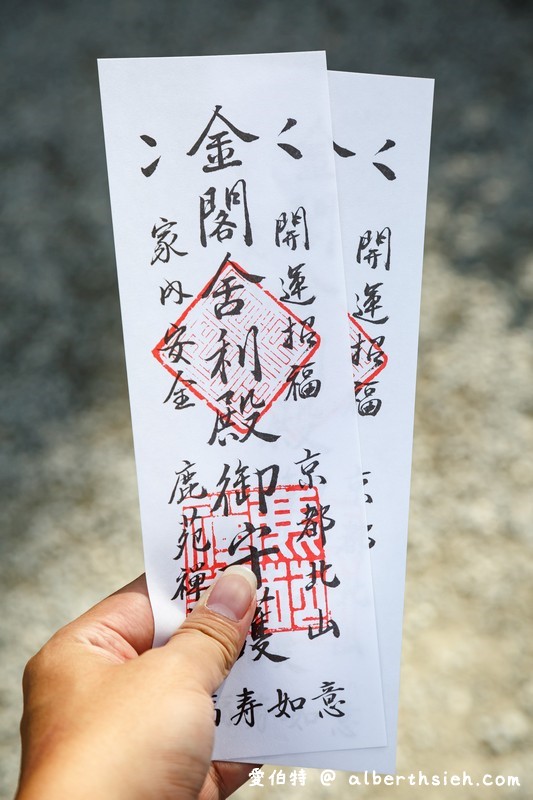 開運招福
京都北山
金閣舍利殿御守護
家内安全
鹿苑禅
寿如意
開運招福
愛伯特 @ alberthsieh.com